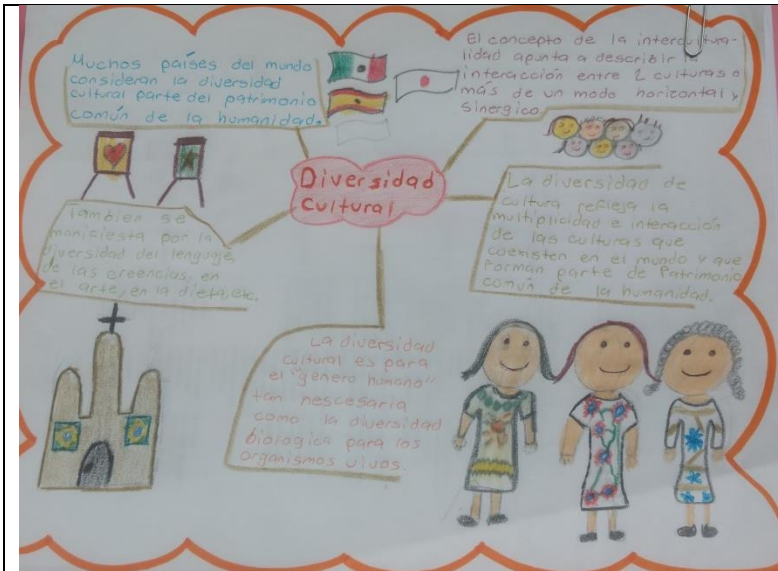 Muchos países del mundo
consideran la diversidad
cultural parte del patrimonio
común de la humanidad.
El concepto de la intercultura-
lidad apunta a describir la
interacción entre 2 culturas o
más de un modo horizontal y
sinergico.
Diversidad
Cultural
Tambien se
manifiesta por la
diversidad del lenguaje,
de las creencias, en
el arte, en la dieta, etc.
La diversidad de
cultura refleja la
multiplicidad e interacción
de las culturas que
coexisten en el mundo y que
Forman parte de Patrimonio
común de la humanidad.
La diversidad
cultural es para
el "genero humano"
tan nescesaria
como la diversidad
biologica para los
organismos vivos.